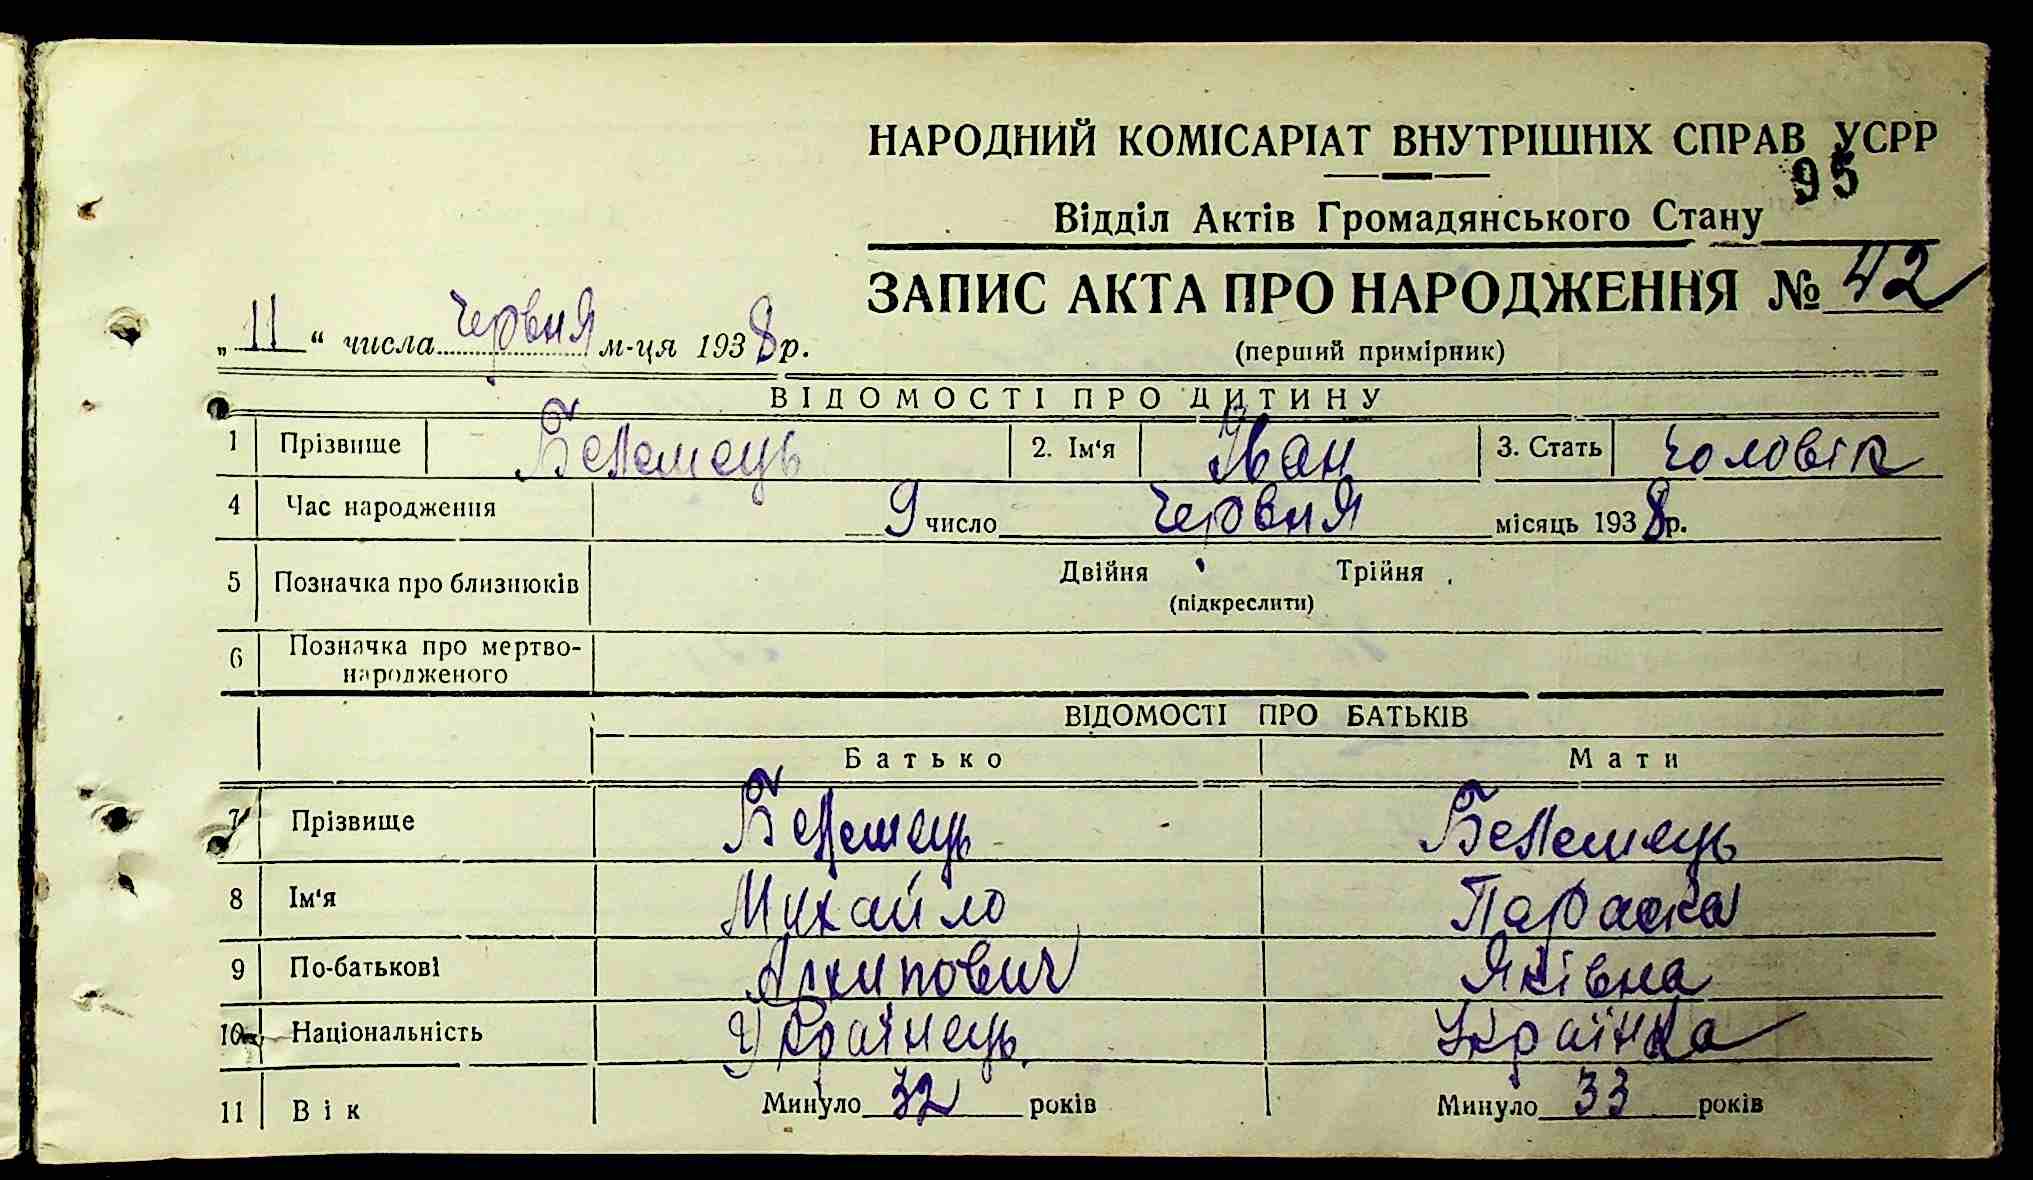 НАРОДНИЙ КОМІСАРІАТ ВНУТРІШНІХ СПРАВ УСРР
95
Відділ Актів Громадянського Стану
ЗАПИС АКТА ПРО НАРОДЖЕННЯ № 42
„11“ числа червня м-ця 1938 р.
(перший примірник)
ВІДОМОСТІ ПРО ДИТИНУ
1 Прізвище Белемець 2. Ім'я Іван 3. Стать чоловік
4 Час народження 9 число червня місяць 1938 р.
5 Позначка про близнюків Двійня Трійня
(підкреслити)
6 Позначка про мертво-
народженого
ВІДОМОСТІ ПРО БАТЬКІВ
Батько Мати
7 Прізвище Белемець Белемець
8 Ім'я Михайло Параска
9 По-батькові Архипович Яківна
10 Національність Українець Українка
11 Вік Минуло 32 років Минуло 33 років